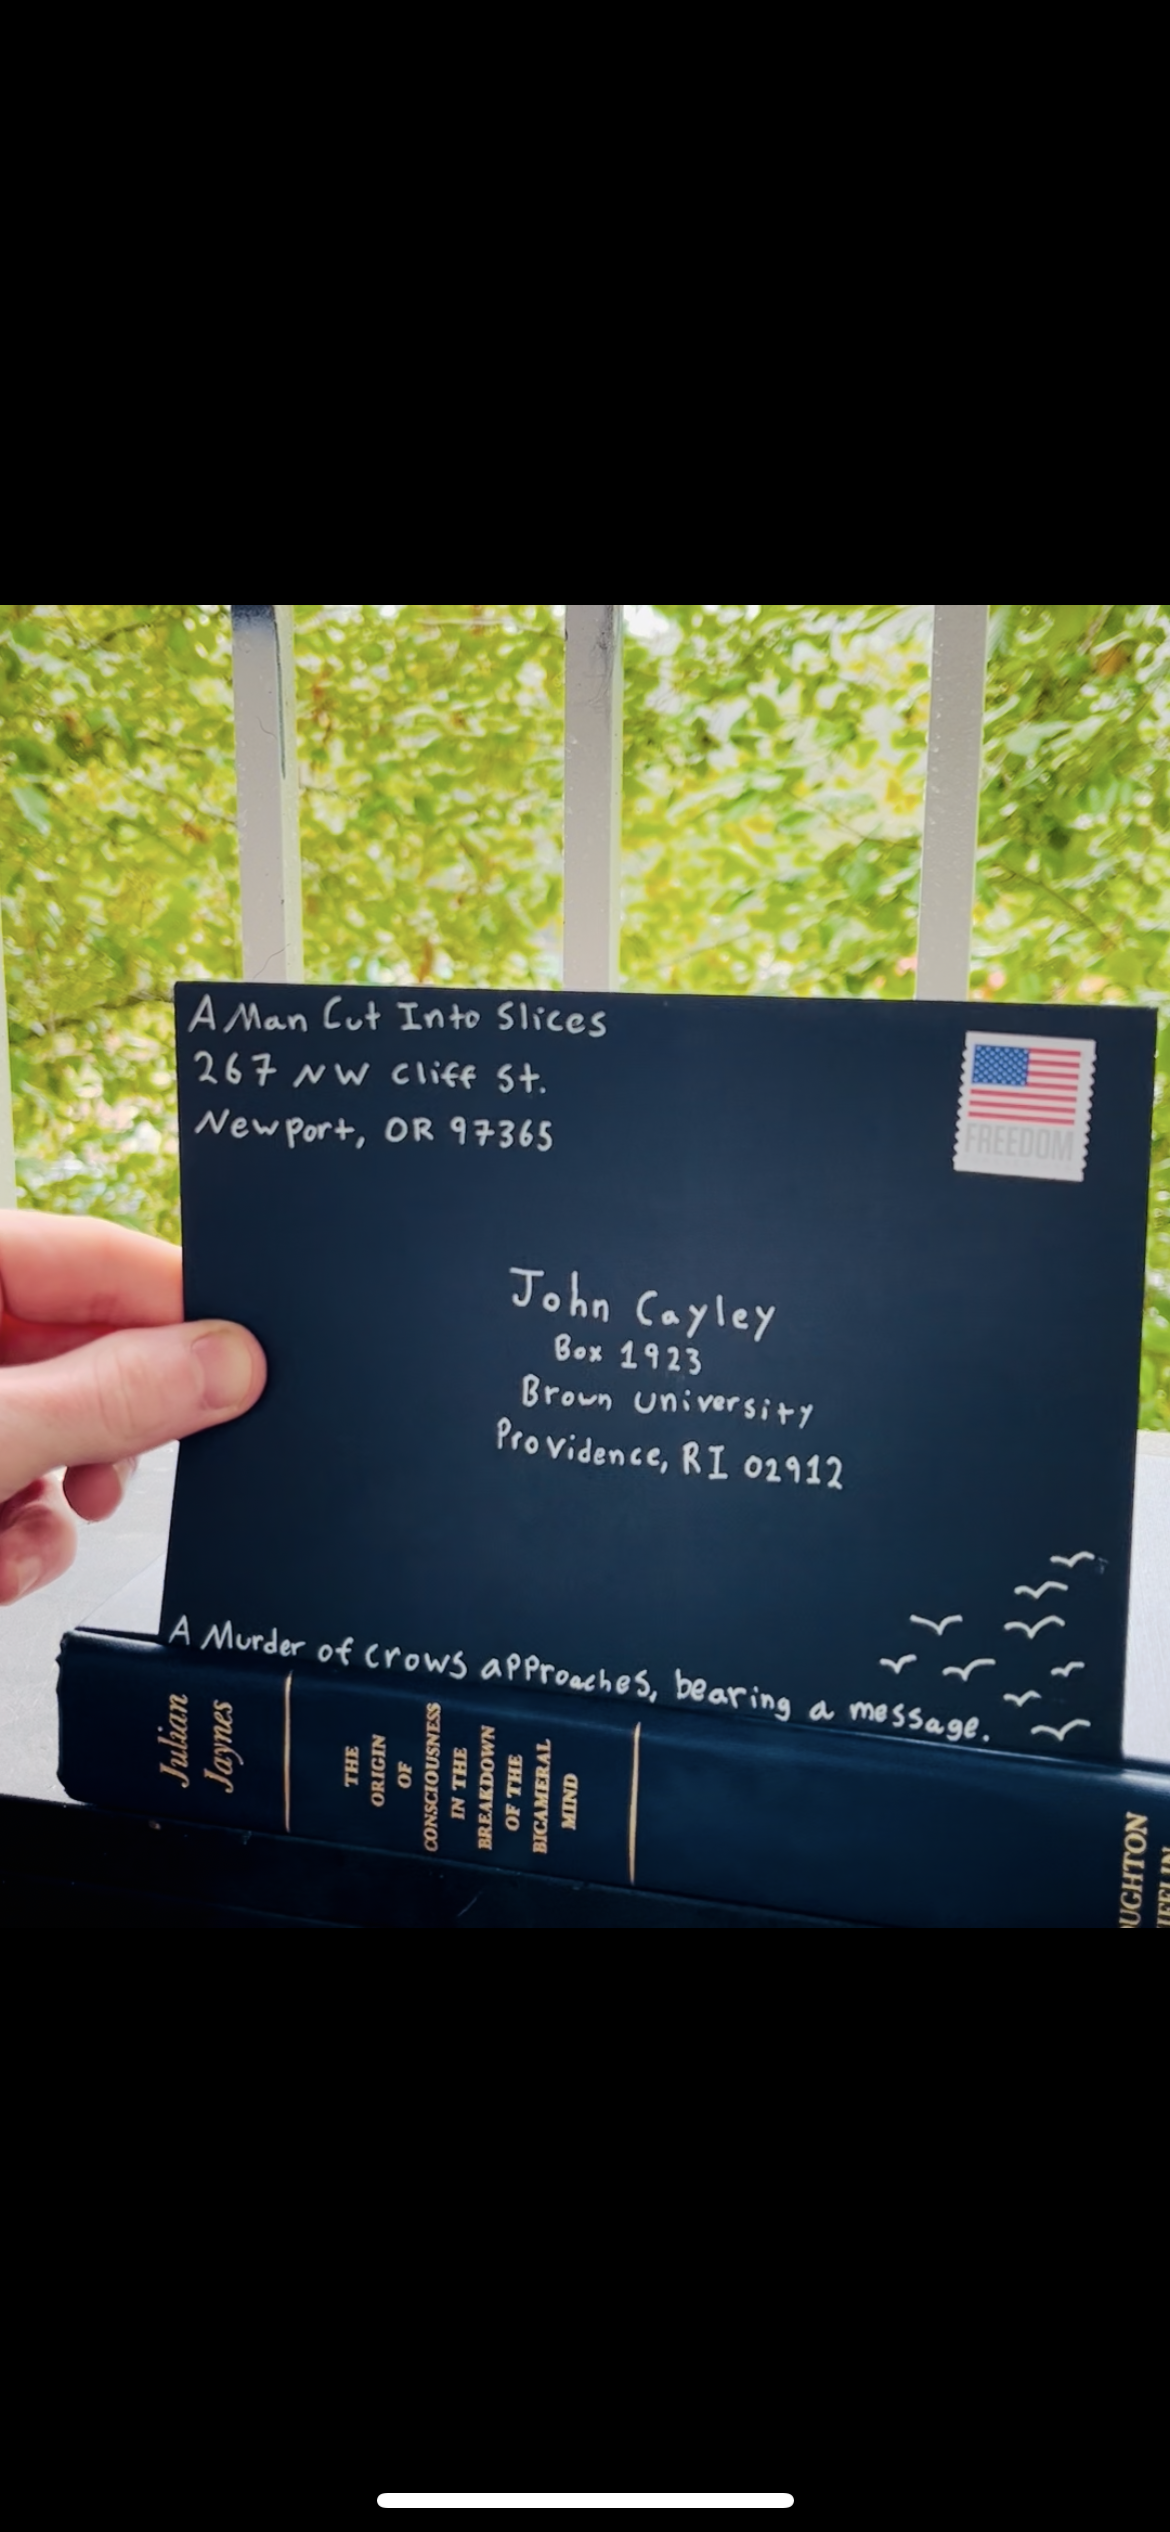 A Man Cut Into Slices
267 NW Cliff St.
Newport, OR 97365
FREEDOM
John Cayley
Box 1923
Brown University
Providence, RI 02912
A Murder of Crows approaches, bearing a message.
Julian
Jaynes
THE
ORIGIN
OF
CONSCIOUSNESS
IN THE
BREAKDOWN
OF THE
BICAMERAL
MIND
UGHTON